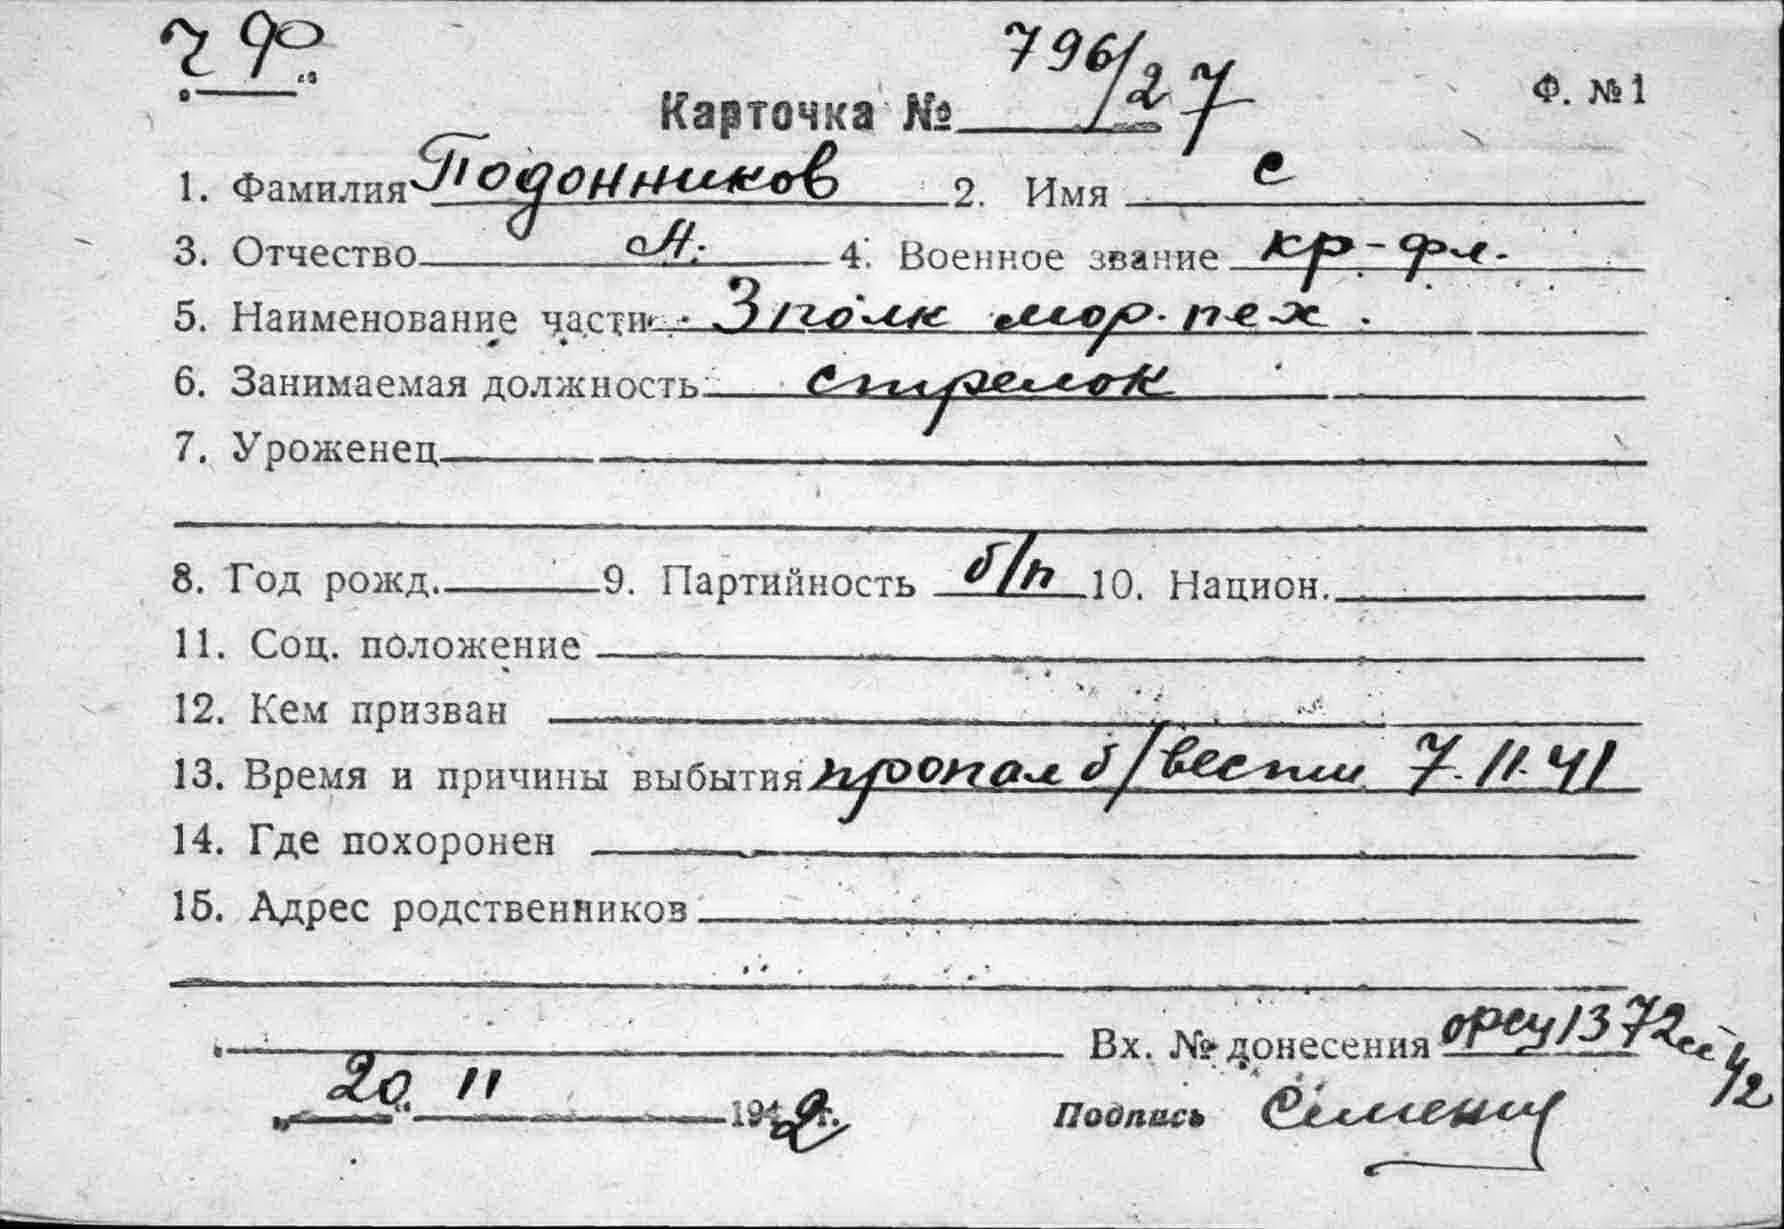 ЧФ
796/27
Ф. №1
Карточка №
1. Фамилия Подонников 2. Имя С
3. Отчество А. 4. Военное звание кр-фл.
5. Наименование части 3 полк мор. пех.
6. Занимаемая должность стрелок
7. Уроженец
8. Год рожд. 9. Партийность б/п 10. Национ.
11. Соц. положение
12. Кем призван
13. Время и причины выбытия пропал б/вести 7.11.41
14. Где похоронен
15. Адрес родственников
Вх. № донесения 1372
20 11 1942 г.
Подпись